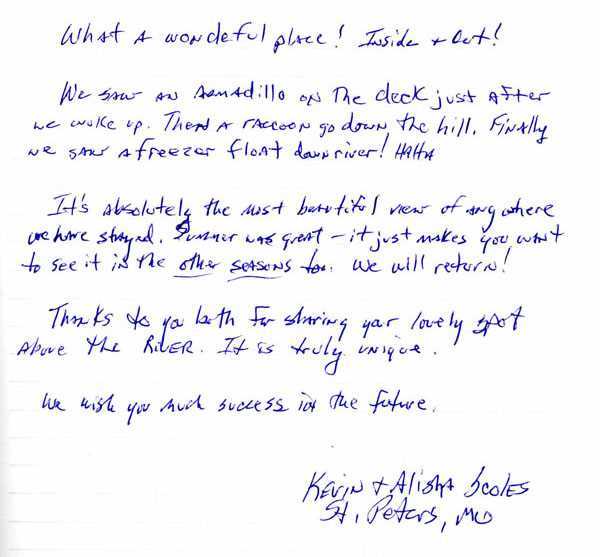 What a wonderful place! Inside + Out!
We saw an armadillo on the deck just after
we woke up. Then a raccoon go down the hill. Finally
we saw a freezer float down river! HaHa
It's absolutely the most beautiful view of anywhere
we have stayed. Summer was great - it just makes you want
to see it in the other seasons too. We will return!
Thanks to you both for sharing your lovely spot
above the River. It is truly unique.
We wish you much success in the future.
Kevin + Alisha Scoles
St. Peters, MO